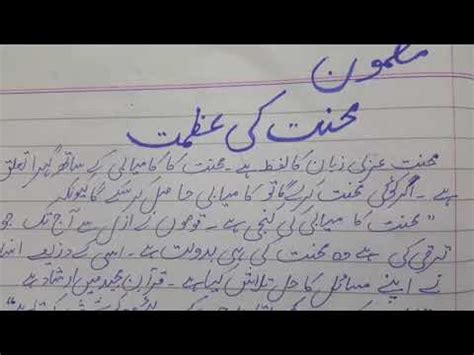 مضمون
محنت کی عظمت
محنت عربی زبان کا لفظ ہے۔ محنت کا کامیابی کے ساتھ گہرا تعلق
ہے۔ اگر کوئی محنت کرے گا تو کامیابی حاصل کر سکے گا کیونکہ
"محنت کامیابی کی کنجی ہے۔ قوموں نے ازل سے آج تک جو
ترقی کی ہے وہ محنت کی ہی بدولت ہے۔ اسی کے ذریعے
نے اپنے مسائل کا حل تلاش کیا ہے۔ قرآن مجید میں ارشاد ہے